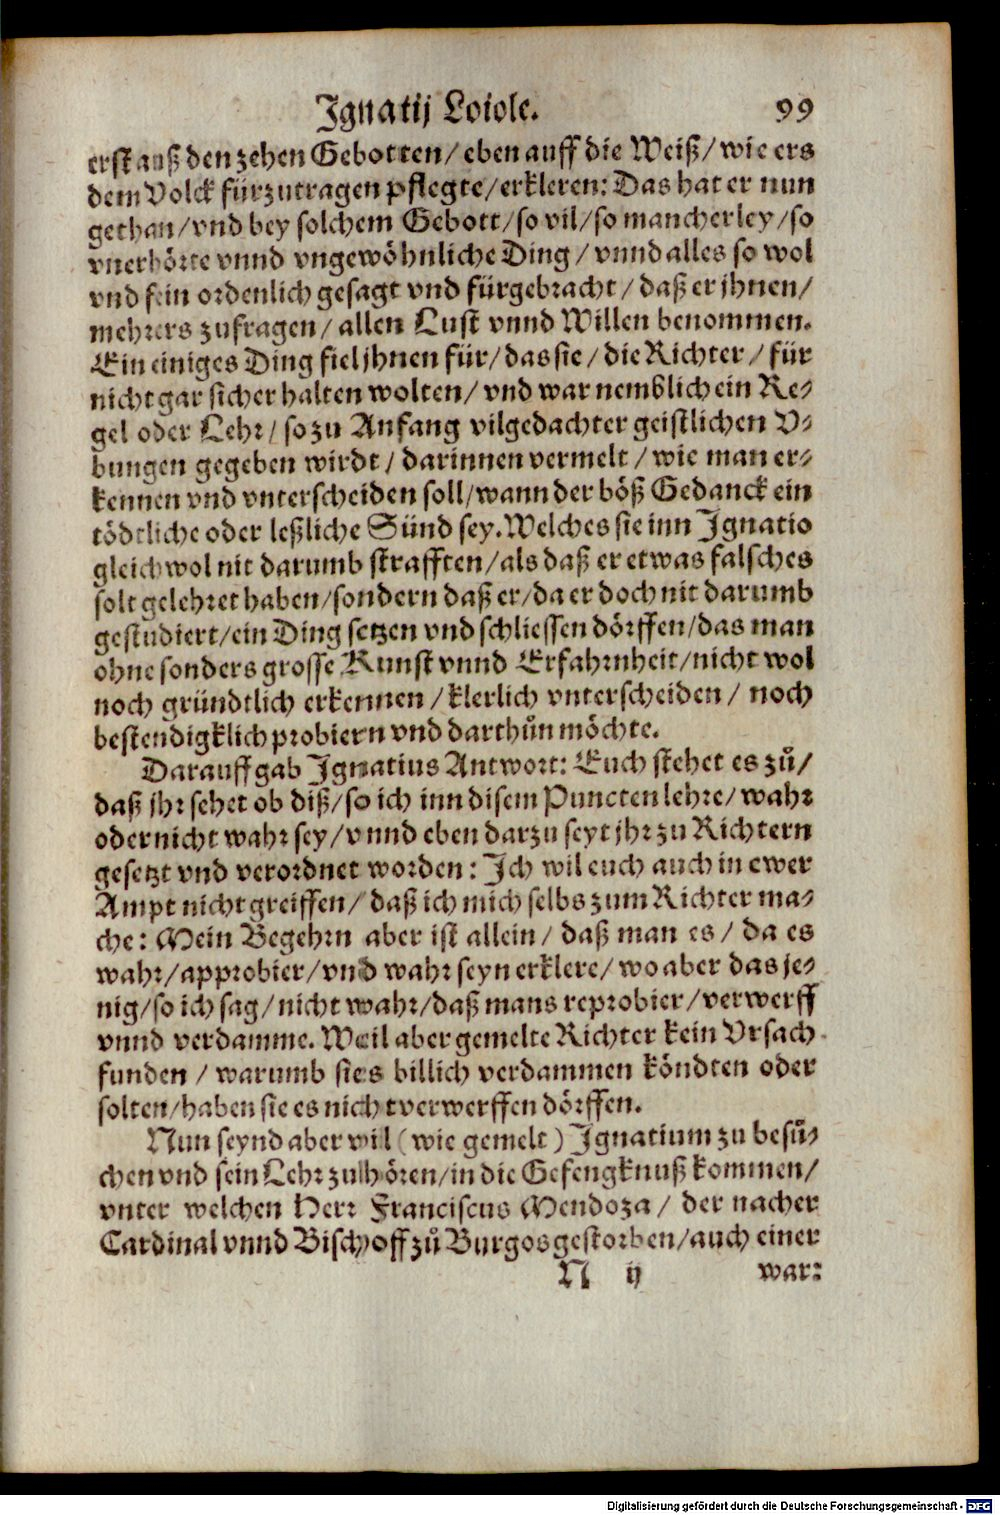 Ignatij Loiole. 99
erst auß den zehen Gebotten/ eben auff die Weiß/ wie ers
dem Volck fürzutragen pflegte/ erkleren: Das hat er nun
gethan/ vnd bey solchem Gebott/ so vil/ so mancherley/ so
vnerhörte vnnd vngewöhnliche Ding/ vnnd alles so wol
vnd fein ordenlich gesagt vnd fürgebracht/ daß er jhnen/
mehrers zufragen/ allen Lust vnnd Willen benommen.
Ein einiges Ding fiel jhnen für/ das sie/ die Richter/ für
nicht gar sicher halten wolten/ vnd war nemblich ein Re-
gel oder Lehr/ so zu Anfang vilgedachter geistlichen V-
bungen gegeben wirdt/ darinnen vermelt/ wie man er-
kennen vnd vnterscheiden soll/ wann der böß Gedanck ein
tödtliche oder leßliche Sünd sey. Welches sie inn Ignatio
gleichwol nit darumb strafften/ als daß er etwas falsches
solt gelehret haben/ sondern daß er/ da er doch nit darumb
gestudiert/ ein Ding setzen vnd schliessen dörffen/ das man
ohne sonders grosse Kunst vnnd Erfahrnheit/ nicht wol
noch gründtlich erkennen/ klerlich vnterscheiden/ noch
bestendigklich probiern vnd darthůn möchte.
Darauff gab Ignatius Antwort: Euch stehet es zů/
daß jhr sehet ob diß/ so ich inn disem Puncten lehre/ wahr
oder nicht wahr sey/ vnnd eben darzu seyt jhr zu Richtern
gesetzt vnd verordnet worden: Ich wil euch auch in ewer
Ampt nicht greiffen/ daß ich mich selbs zum Richter ma-
che: Mein Begehrn aber ist allein/ daß man es/ da es
wahr/ approbier/ vnd wahr seyn erklere/ wo aber das je-
nig/ so ich sag/ nicht wahr/ daß mans reprobier/ verwerff
vnnd verdamme. Weil aber gemelte Richter kein Vrsach
funden/ warumb sie s billich verdammen köndten oder
solten/ haben sie es nicht verwerffen dörffen.
Nun seynd aber vil (wie gemelt) Ignatium zu besů-
chen vnd sein Lehr zuhören/ in die Gefengknuß kommen/
vnter welchen Herr Franciscus Mendoza/ der nacher
Cardinal vnnd Bischoff zů Burgos gestorben/ auch einer
N ij war:
Digitalisierung gefördert durch die Deutsche Forschungsgemeinschaft - DFG